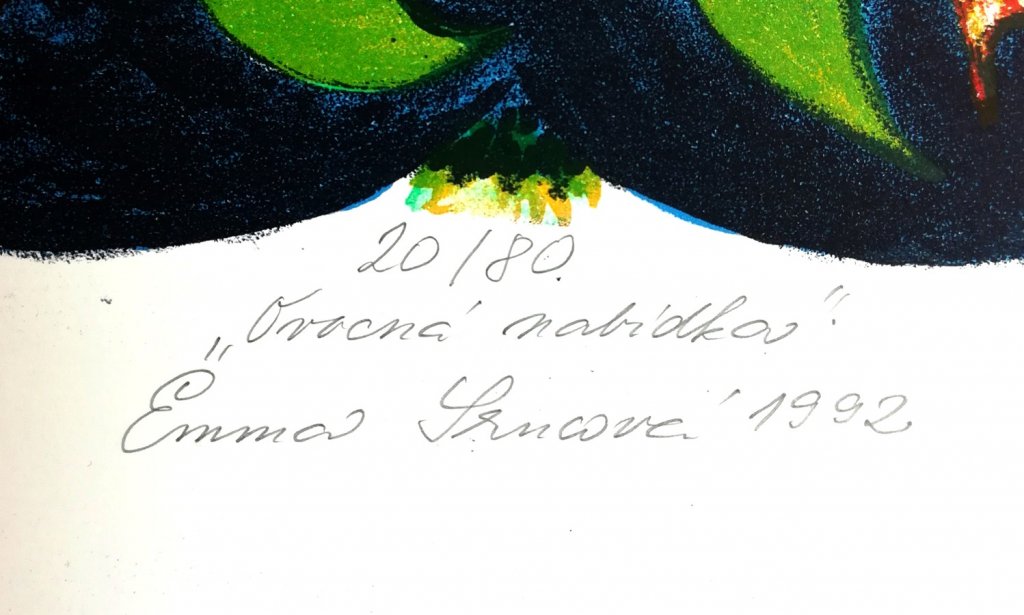 20/80
„Ovocná nabídka“
Emma Srncová 1992